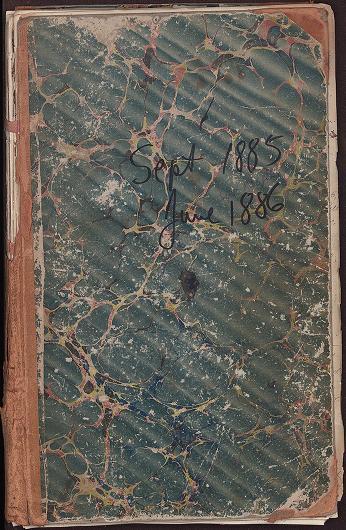 Sept 1885
June 1886